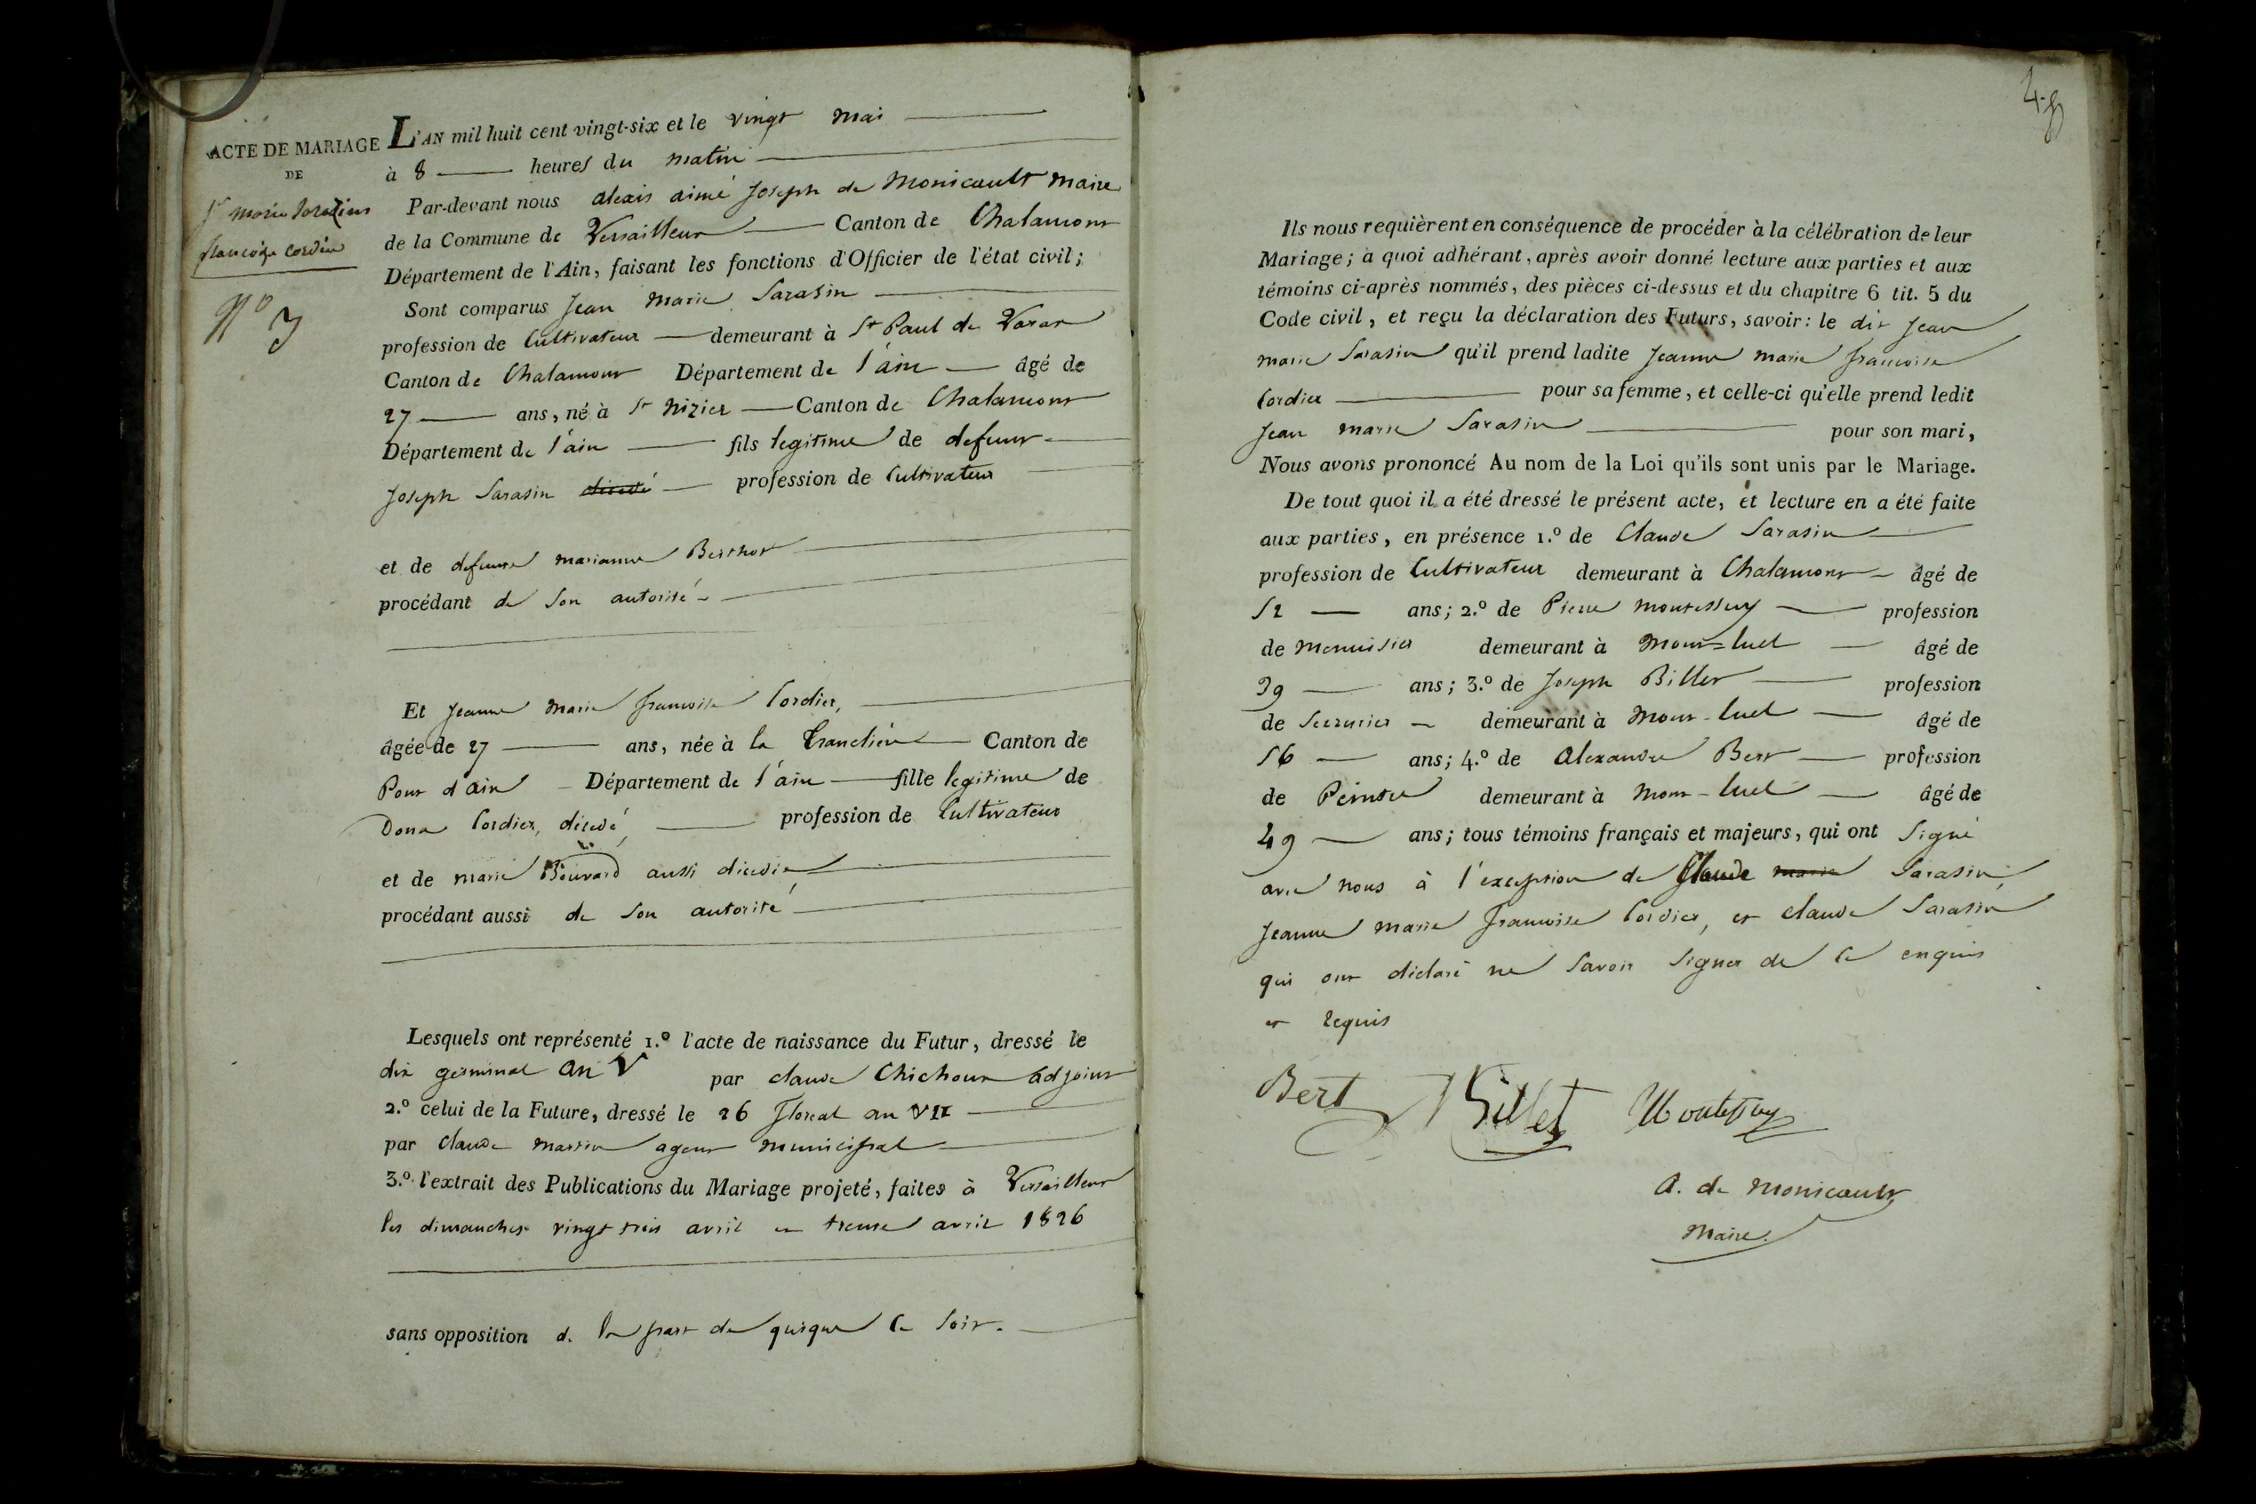 ACTE DE MARIAGE
DE
Jn marie Sarazin
françoise Cordier
N.º 3
L'AN mil huit cent vingt-six et le vingt mai
à 8 heures du matin
Par-devant nous alexis aimé Joseph de Monicault maire
de la Commune de Versailleux Canton de Chalamont
Département de l'Ain, faisant les fonctions d'Officier de l'état civil;
Sont comparus Jean Marie Sarasin
profession de Cultivateur demeurant à St Paul de Varax
Canton de Chalamont Département de l'ain âgé de
27 ans, né à St Nizier Canton de Chalamont
Département de l'ain fils legitime de defunt
Joseph Sarasin décédé profession de Cultivateur
et de defunte marianne Berthot
procédant de son autorité
Et Jeanne Marie francoise Cordier,
âgée de 27 ans, née à la Tranclière Canton de
Pont d'ain Département de l'ain fille legitime de
Dona Cordier, décédé, profession de Cultivateur
et de marie Bouvard aussi décédée
procédant aussi de son autorité
Lesquels ont représenté 1.º l'acte de naissance du Futur, dressé le
dix germinal an V par claude Chichoux adjoint
2.º celui de la Future, dressé le 26 floreal an VII
par claude martin agent municipal
3.º l'extrait des Publications du Mariage projeté, faites à Versailleux
les dimanches vingt trois avril et trente avril 1826
sans opposition de la part de quique ce soit.
48
Ils nous requièrent en conséquence de procéder à la célébration de leur
Mariage; à quoi adhérant, après avoir donné lecture aux parties et aux
témoins ci-après nommés, des pièces ci-dessus et du chapitre 6 tit. 5 du
Code civil, et reçu la déclaration des Futurs, savoir: le dit Jean
marie Sarasin qu'il prend ladite Jeanne marie francoise
Cordier pour sa femme, et celle-ci qu'elle prend ledit
Jean marie Sarasin pour son mari,
Nous avons prononcé Au nom de la Loi qu'ils sont unis par le Mariage.
De tout quoi il a été dressé le présent acte, et lecture en a été faite
aux parties, en présence 1.º de Claude Sarasin
profession de Cultivateur demeurant à Chalamont âgé de
52 ans; 2.º de Pierre montessuy profession
de menuisier demeurant à Mont-luel âgé de
39 ans; 3.º de Joseph Billet profession
de Serrurier demeurant à Mont-luel âgé de
56 ans; 4.º de Alexandre Bert profession
de Peintre demeurant à Mont-luel âgé de
49 ans; tous témoins français et majeurs, qui ont signé
avec nous à l'exception de Claude marie Sarasin
Jeanne marie francoise Cordier, et claude Sarasin
qui ont déclaré ne savoir signer de ce enquis
et requis
Bert Billet Montessuy
A. de Monicault
Maire.